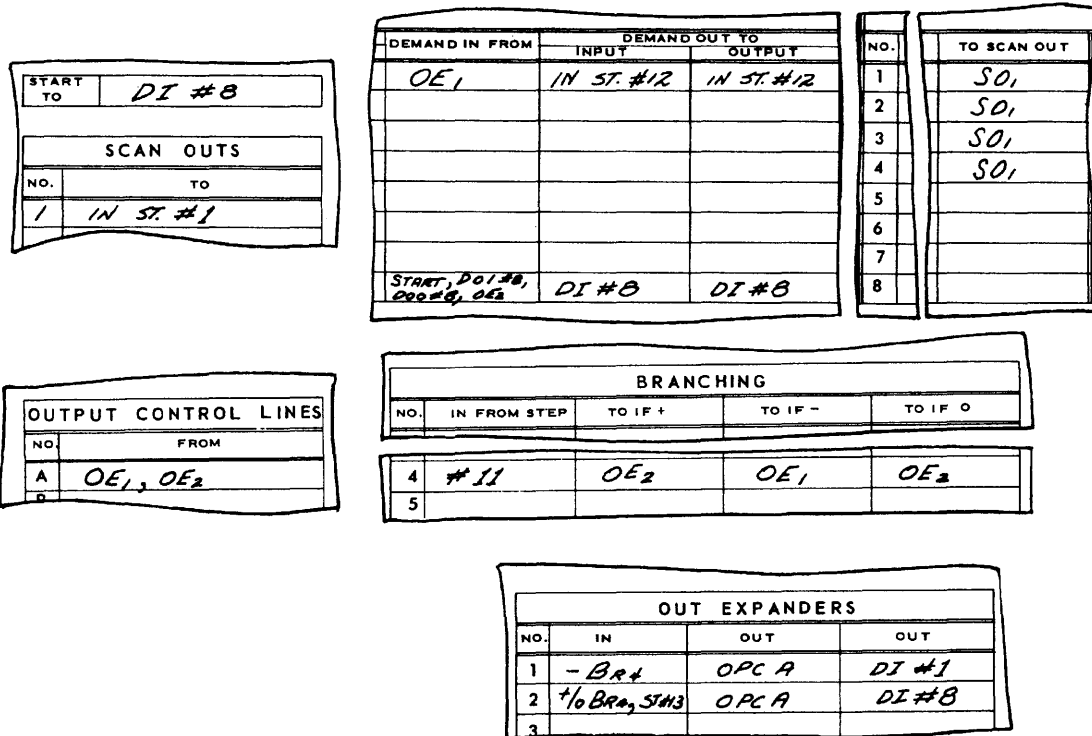 START TO DI #8
SCAN OUTS
NO. TO
1 IN ST. #1
DEMAND IN FROM DEMAND OUT TO
INPUT OUTPUT
OE1 IN ST. #12 IN ST. #12
START, DOI #8,
DOO #8, OE2 DI #8 DI #8
NO. TO SCAN OUT
1 SO1
2 SO1
3 SO1
4 SO1
5
6
7
8
OUTPUT CONTROL LINES
NO. FROM
A OE1, OE2
BRANCHING
NO. IN FROM STEP TO IF + TO IF - TO IF O
4 #11 OE2 OE1 OE2
5
OUT EXPANDERS
NO. IN OUT OUT
1 - BR4 OPC A DI #1
2 +/0 BR4, ST#13 OPC A DI #8
3